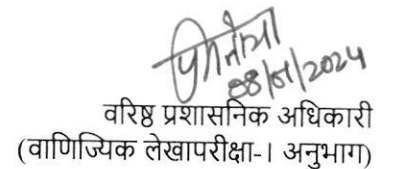 08/01/2024
वरिष्ठ प्रशासनिक अधिकारी
(वाणिज्यिक लेखापरीक्षा-। अनुभाग)